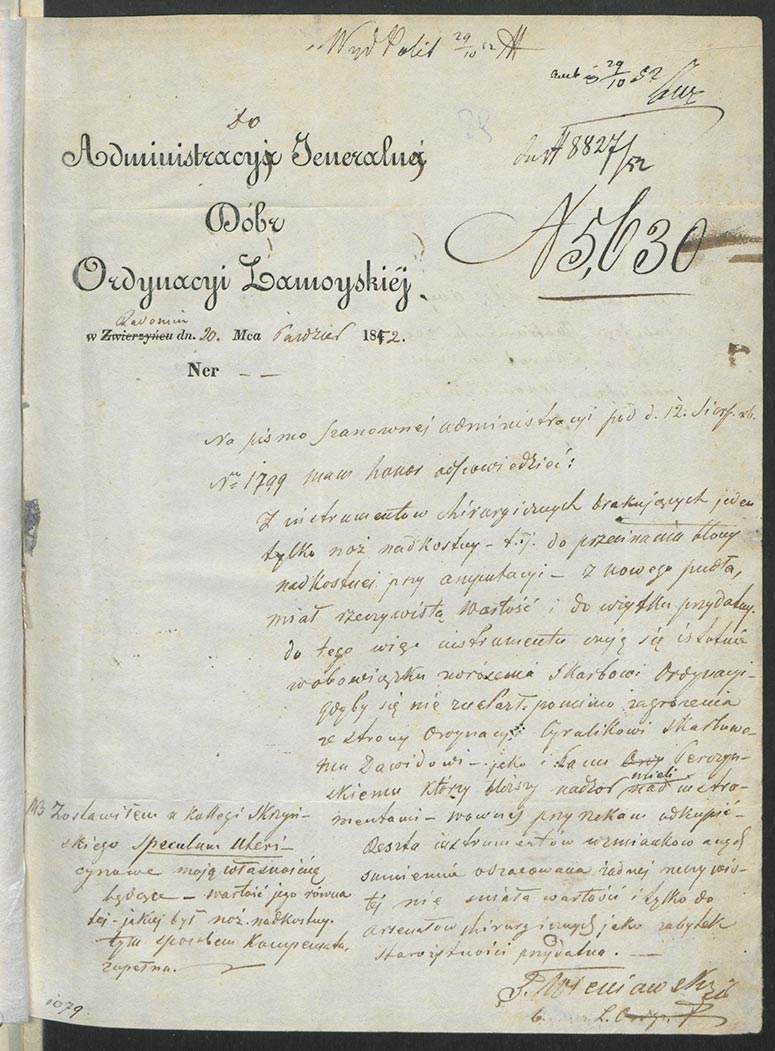 Wyd Polit 29/10 52
29/10 52
do
Administracyi Jeneralnéj
8827/52
Dóbr
N 5,630
Ordynacyi Zamoyskiéj
Radomiu
w Zwierzyńcu dn. 20. Mca Paździer 1852.
Ner — —
Na pismo szanownej administracyi pod d. 12. Sierp. rb.
Nro 1799 mam honor odpowiedzieć:
Z instrumentów chirurgicznych brakujących jeden
tylko nóż nadkostny – t.j. do przecinania błony
nadkostnej przy amputacyi – z nowego pudła,
miał rzeczywistą wartość i do użytku przydatny.
do tego więc instrumentu czuję się istotnie
w obowiązku wrócenia Skarbowi Ordynacyi
gdyby się nie znalazł pomimo zagrożenia
ze strony Ordynacyi Cyrulikowi Skarbowe-
mu Dawidowi – jako i Panu Gorczyń-
skiemu którzy bliższy nadzór mieli nad instru-
mentami – w owczas przyrzekam odkupić –
Reszta instrumentów wzmiankowanych
sumiennie oszacowana żadnej rzeczywis-
tej nie miała wartości i tylko do
arsenałów chirurgicznych jako zabytek
starożytności przydatna. —
NB Zostawiłem u kollegi Skrzyń-
skiego speculum uteri –
cynowe moją własnością
będące – wartość jego równa
tej – jakiej był nóż nadkostny.
tym sposobem kompensata
zupełna. —
P. Wieniawski
b. L. Ordyn.
1079